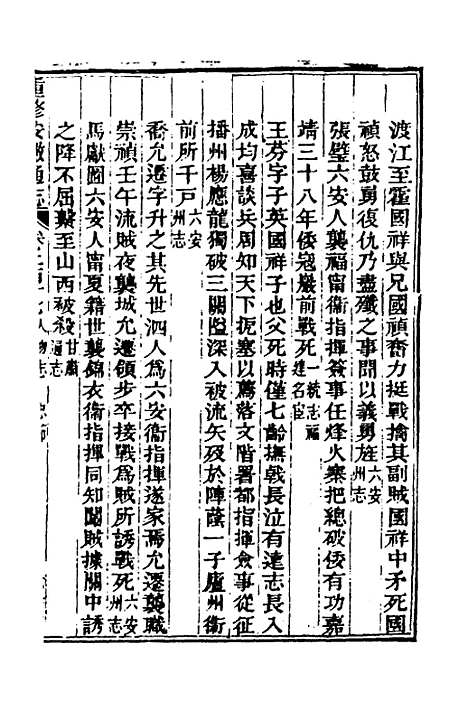 渡江至霍國祥與兄國禎奮力挺戰擒其副賊國祥中矛死國
禎怒鼓勇復仇乃盡殲之事聞以義勇旌六安州志
張璧六安人襲福甯衞指揮僉事任烽火寨把總破倭有功嘉
靖三十八年倭寇嚴前戰死一統志福建名宦
王芬字子英國祥子也父死時僅七齡撫戟長泣有遠志長入
成均喜談兵周知天下扼塞以薦落文階署都指揮僉事從征
播州楊應龍獨破三關隘深入被流矢歿於陣蔭一子廬州衞
前所千戸六安州志
喬允遷字升之其先世泗人爲六安衞指揮遂家焉允遷襲職
崇禎壬午流賊夜襲城允遷領步卒接戰爲賊所誘戰死六安州志
馬獻圖六安人甯夏籍世襲錦衣衞指揮同知闖賊據關中誘
之降不屈縶至山西被殺甘肅通志
重修安徽通志
人物志 忠節